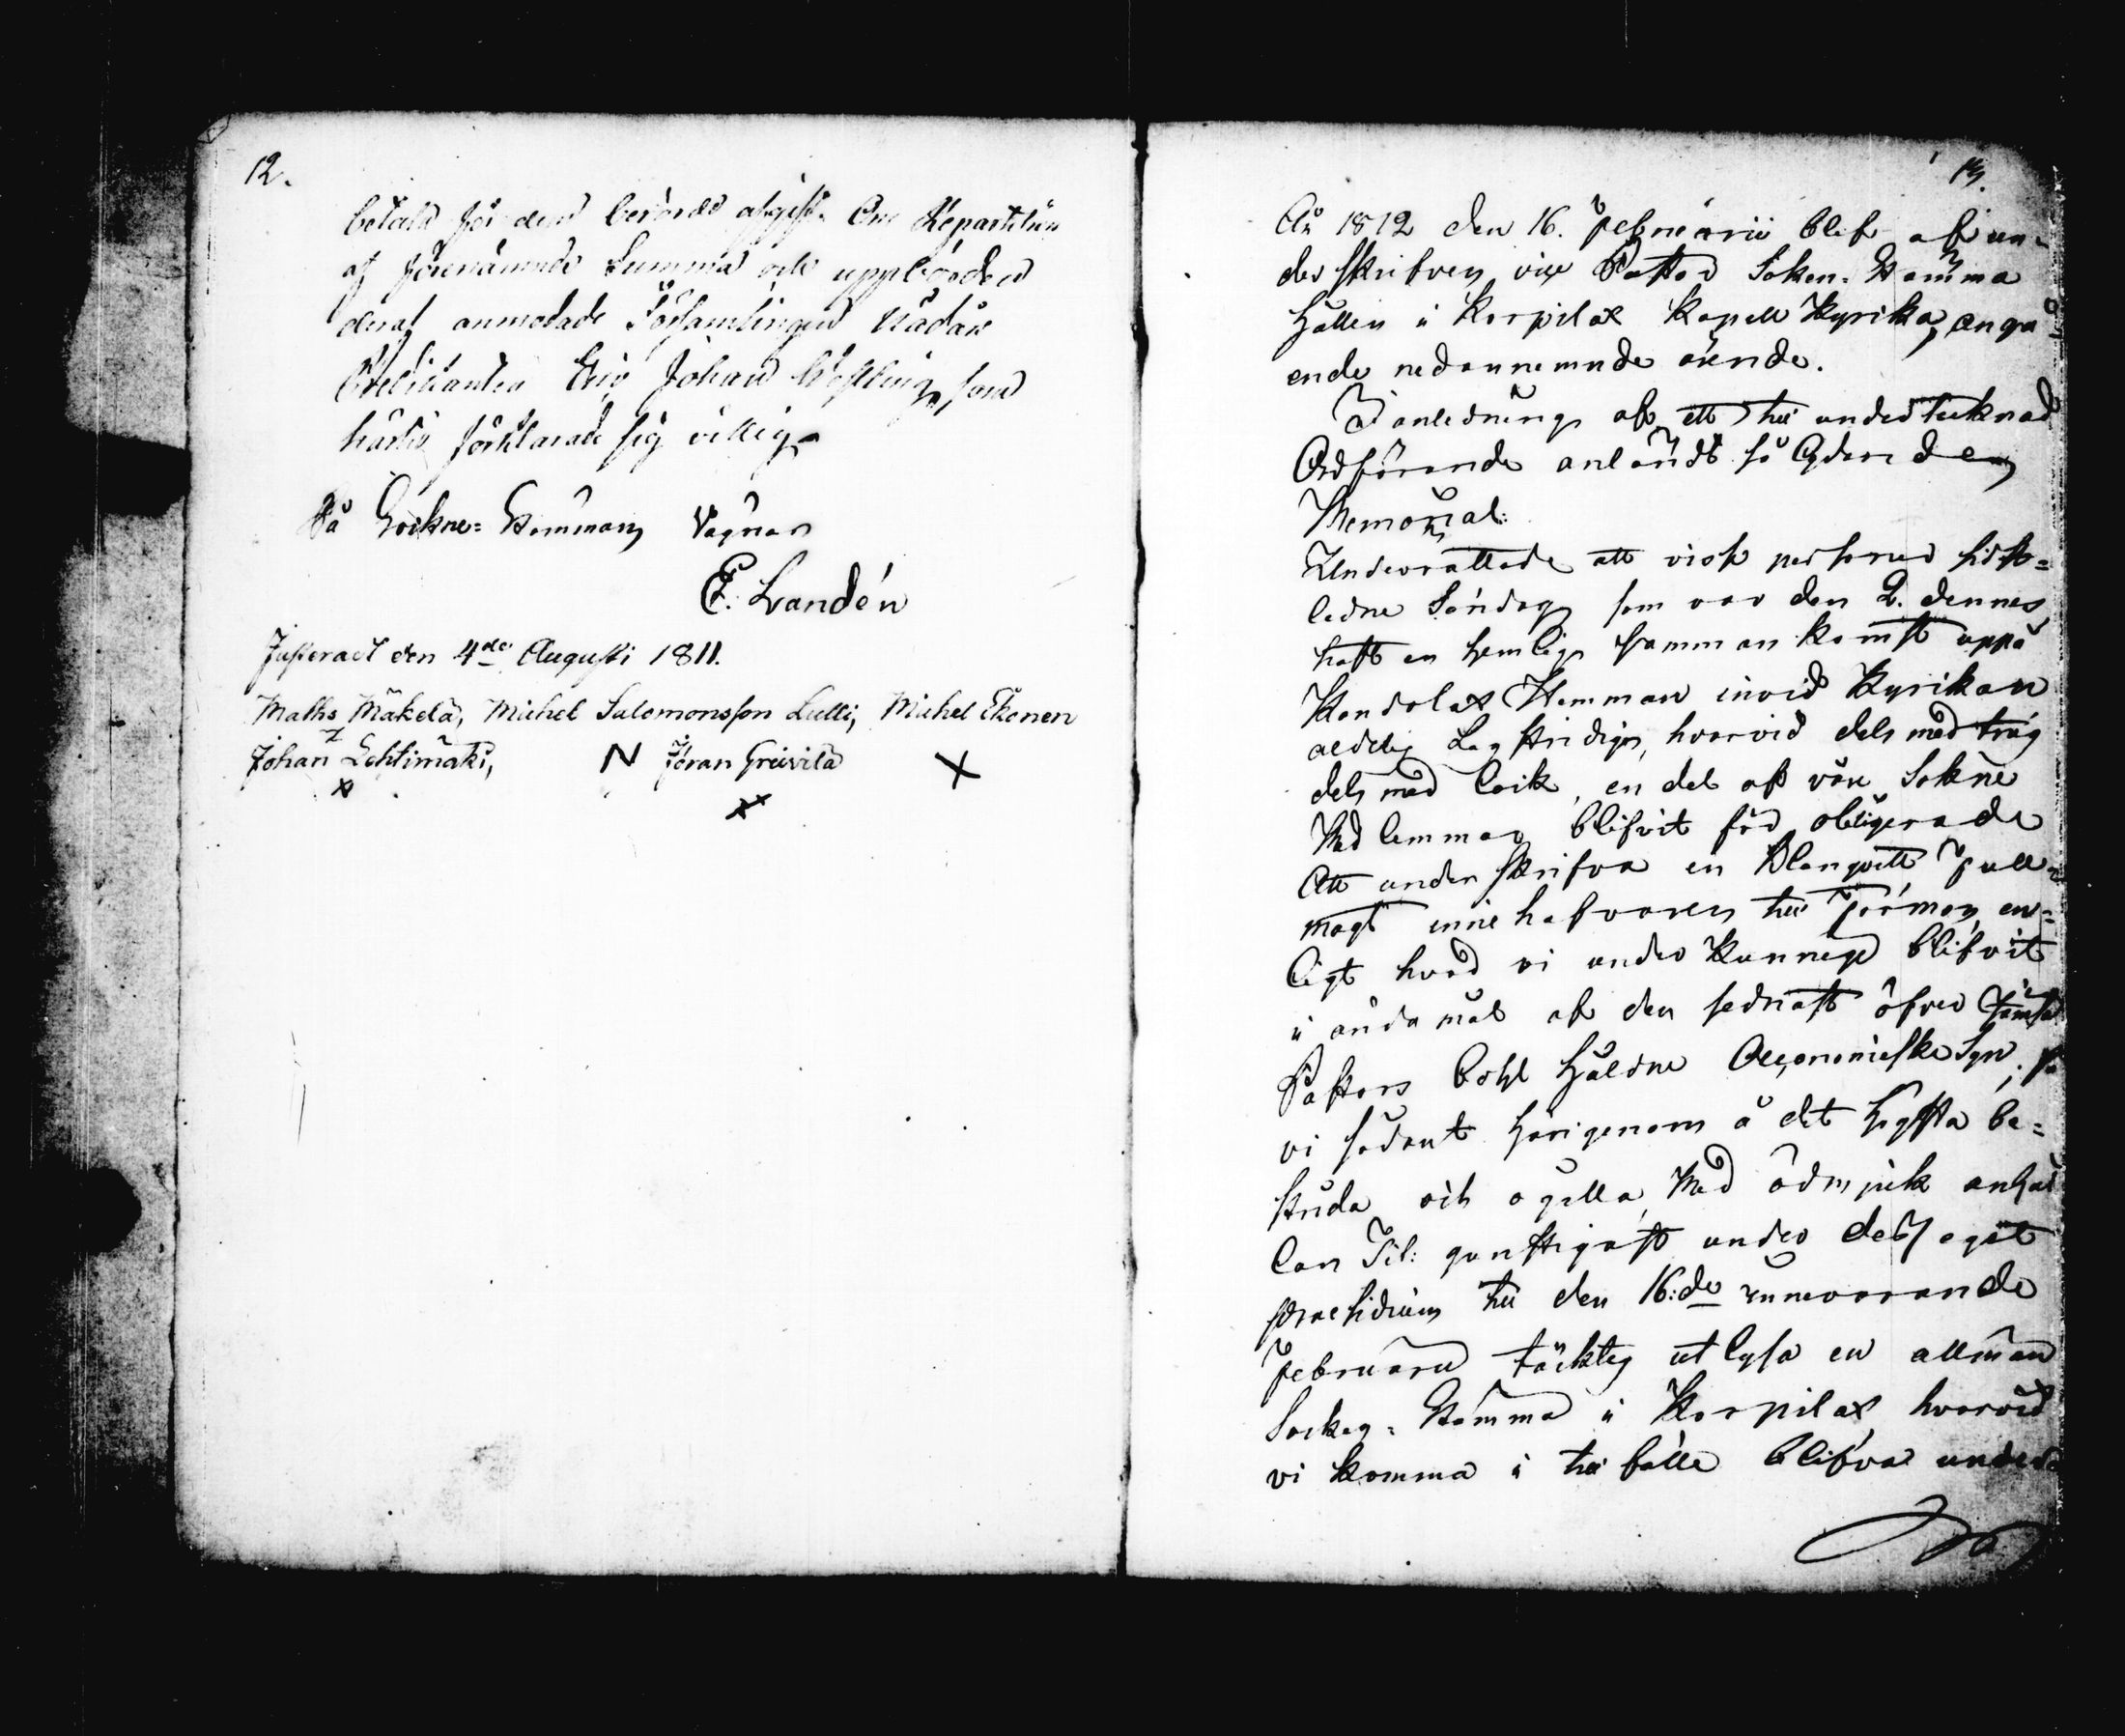 12.
betald för den berörde afgift. Om Repartition
af förenämnde Summa och uppbörden
deraf anmodade Församlingen
Eric Johan Westling, som
härtil förklarade sig villig.
På Sockne-Stämmans Vägnar
E. Landén
Justerad den 4de Augusti 1811.
Maths Mäkelä, Michel Salomonsson Lulli, Michel Ekonen
Johan Lehtimäki, N Jöran
X X X
13.
År 1812 den 16. Februarii blef af un-
derskrifven vice Pastor Soken-Stämma
hållen i Korpilax Kapell Kyrika, angå-
ende nedannemnde ärende.
I anledning af ett till undertecknad
Ordförande anländt så lydande
Memorial:
Underrättade att viss person sidst-
ledne Söndag som var den 2. dennes
haft en hemlig sammankomst uppå
Hemman invid Kyrikan
aldeles Lagstridigt, hvarvid dels med trug
dels med lock, en del af våre Sokne
Medlemmar blifvit föd obligerade
Att underskrifva en Blanquett Full-
magt innehafvaren till Förmån, en-
ligt hvad vi underkunnige blifvit
i ändamål af den sednast öfver
Pastors Bohl håldne Oeconomiske Syn; så
vi sådant härigenom å det högsta be-
strida och ogilla, Med ödmjuk anhål
lan Til: gunstigast under dess eget
praesidium till den 16:de innevarande
Februarii täcktes utlysa en allmän
Socken-Stämma i Korpilax hvarvid
vi komma i tillfälle blifva under